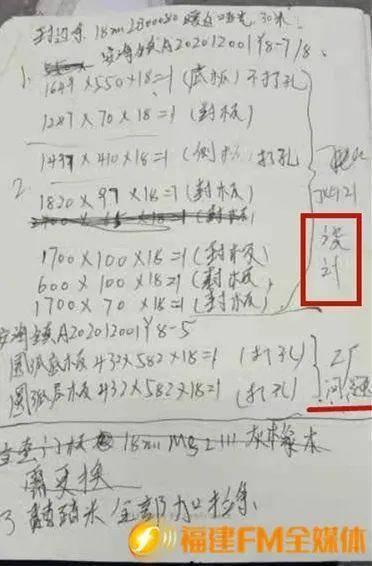 封边条 18mm 2800080 暖白 30米
A202012001Y8-7/8
1.
1649×550×18=1(底板)不打孔
1207×70×18=1(封板)
1437×410×18=1(侧板,打孔)
2. 1820×97×18=1(封板)
1700×100×18=1(封板)
600×100×18=1(封板)
1700×70×18=1(封板)
设计
A202012001Y8-5
圆弧底板432×582×18=1(打孔)
圆弧层板432×582×18=1(打孔)
工厂问题
18mm Mg2111 灰橡木
需更换
3 全部
福建FM全媒体